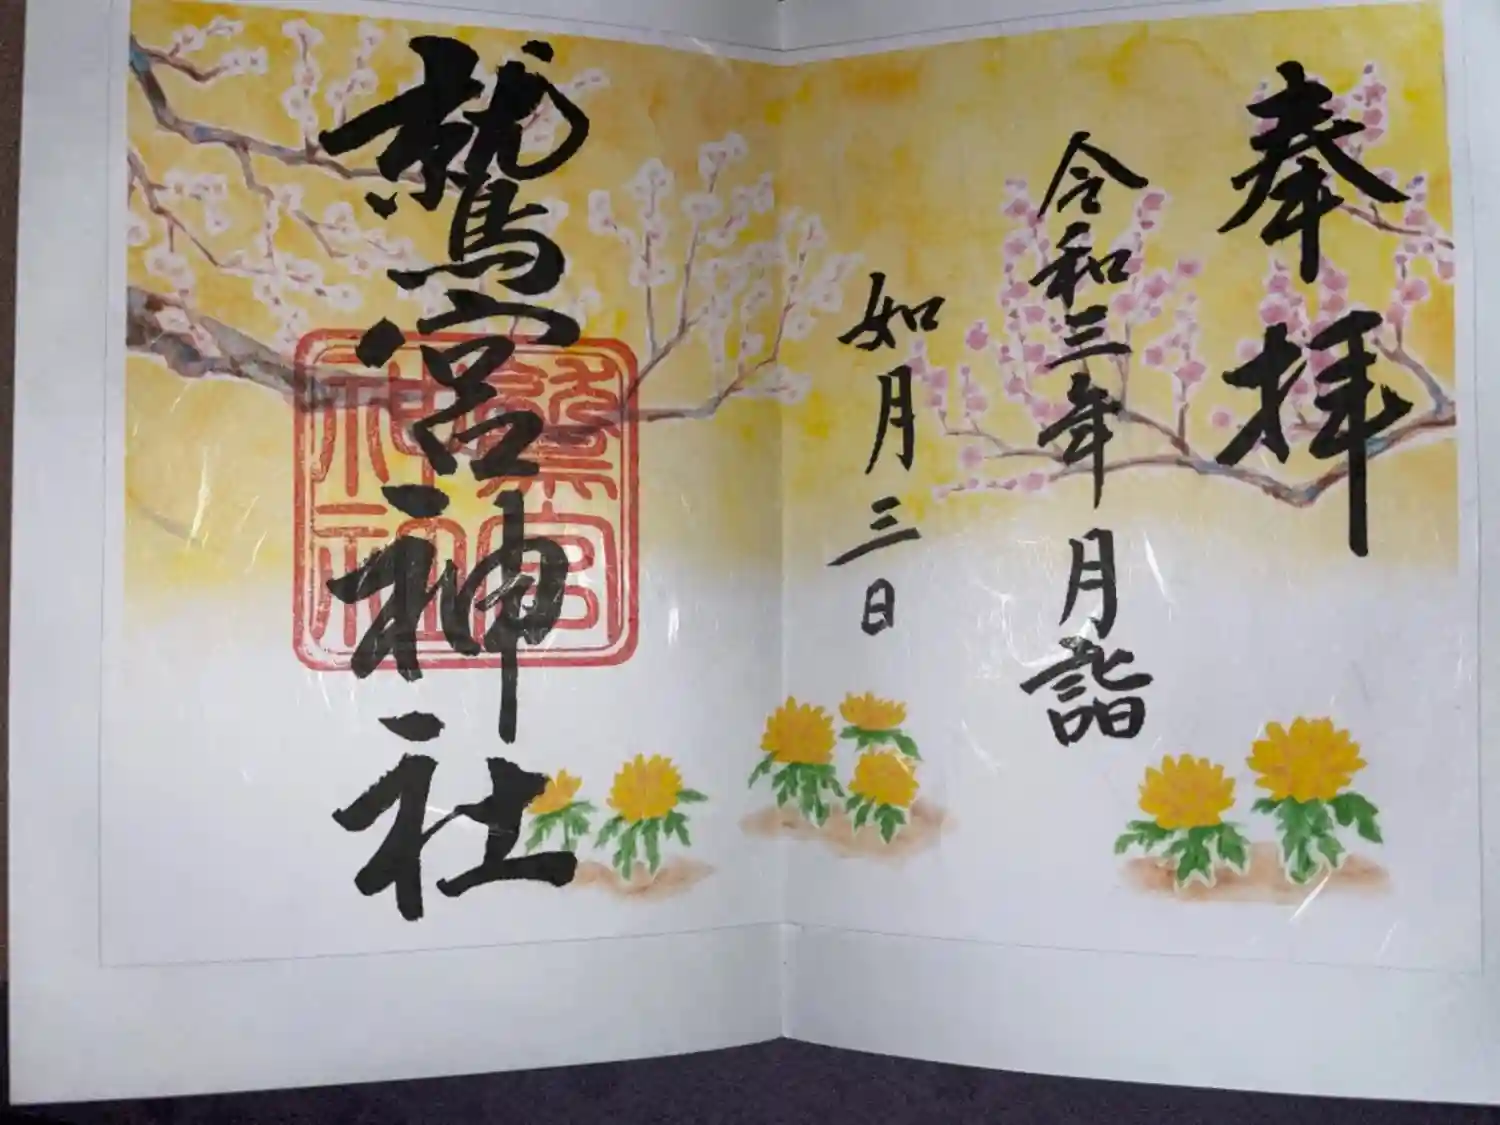 奉拝
令和三年月詣
如月三日
鷲宮神社
鷲宮
神社